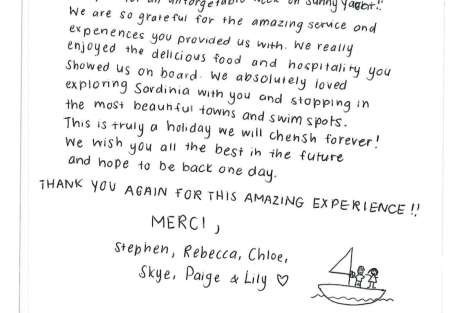 for an unforgetable week on Sunny Yacht!!
We are so grateful for the amazing service and
experiences you provided us with. We really
enjoyed the delicious food and hospitality you
showed us on board. We absolutely loved
exploring Sardinia with you and stopping in
the most beautiful towns and swim spots.
This is truly a holiday we will cherish forever!
We wish you all the best in the future
and hope to be back one day.
THANK YOU AGAIN FOR THIS AMAZING EXPERIENCE!!
MERCI,
Stephen, Rebecca, Chloe,
Skye, Paige & Lily ♡